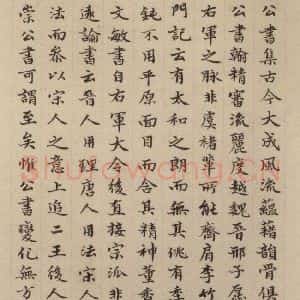 公書集古今大成風流蘊藉韻骨俱
公書翰精審流麗度越魏晉邢子愿
右軍之脉非虞褚輩所能齊肩李竹
門記云有太和之朗而無其佻有季
鈍不用平原面目而含其精神董香
文敏書自右軍大令後直接宗派非
論書云晉人用理唐人用法宋人
法而參以宋人之意上追二王後人
崇公書可謂至矣惟公書變化無方